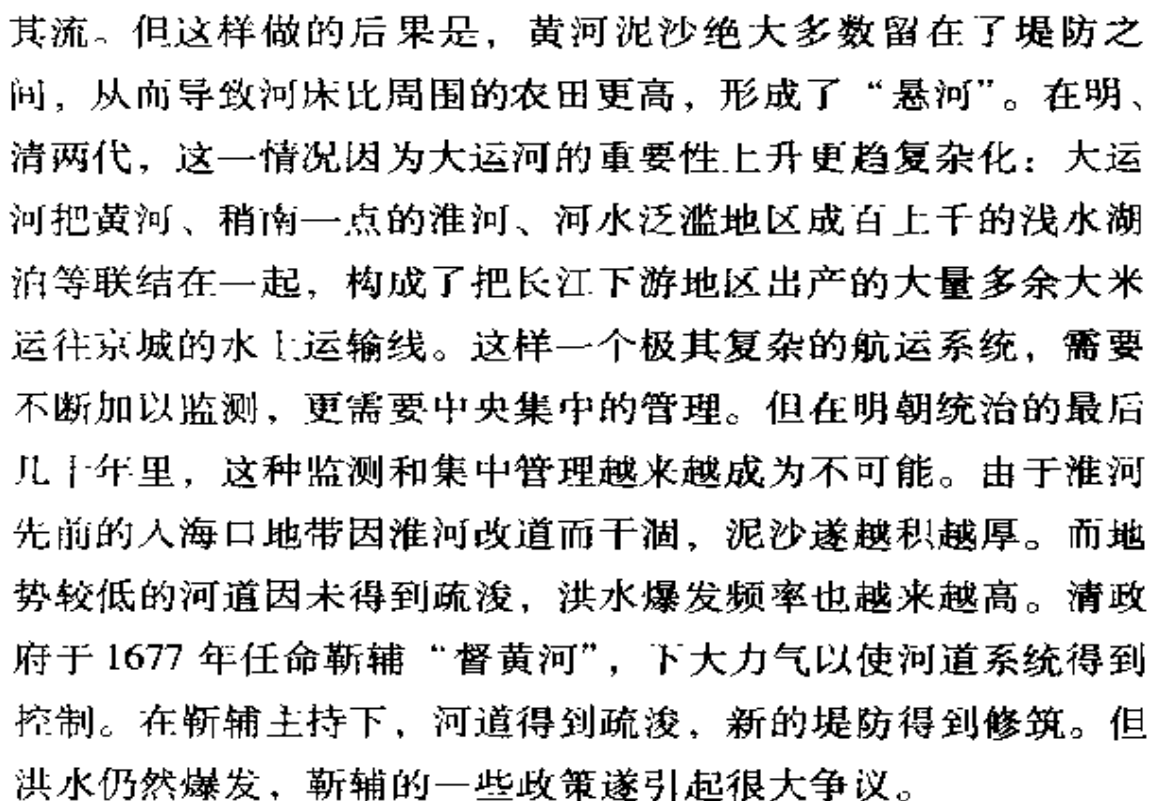 其流。但这样做的后果是，黄河泥沙绝大多数留在了堤防之
间，从而导致河床比周围的农田更高，形成了“悬河”。在明、
清两代，这一情况因为大运河的重要性上升更趋复杂化：大运
河把黄河、稍南一点的淮河、河水泛滥地区成百上千的浅水湖
泊等联结在一起，构成了把长江下游地区出产的大量多余大米
运往京城的水上运输线。这样一个极其复杂的航运系统，需要
不断加以监测，更需要中央集中的管理。但在明朝统治的最后
几十年里，这种监测和集中管理越来越成为不可能。由于淮河
先前的入海口地带因淮河改道而干涸，泥沙遂越积越厚。而地
势较低的河道因未得到疏浚，洪水爆发频率也越来越高。清政
府于 1677 年任命靳辅“督黄河”，下大力气以使河道系统得到
控制。在靳辅主持下，河道得到疏浚，新的堤防得到修筑。但
洪水仍然爆发，靳辅的一些政策遂引起很大争议。